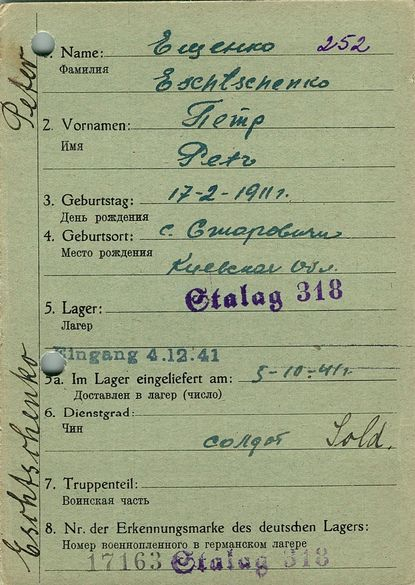 1. Name: Ещенко 252
Фамилия Eschtschenko
2. Vornamen: Пётр
Имя
Petr
3. Geburtstag: 17-2-1911г.
День рождения
4. Geburtsort: с. Старовичи
Место рождения
Киевская обл.
5. Lager: Stalag 318
Лагер
Eingang 4.12.41
5a. Im Lager eingeliefert am: 5-10-41г.
Доставлен в лагер (число)
6. Dienstgrad:
Чин
солдат Sold.
7. Truppenteil:
Воинская часть
8. Nr. der Erkennungsmarke des deutschen Lagers:
Номер военнопленного в германском лагере
17163 Stalag 318
Eschtschenko Peter